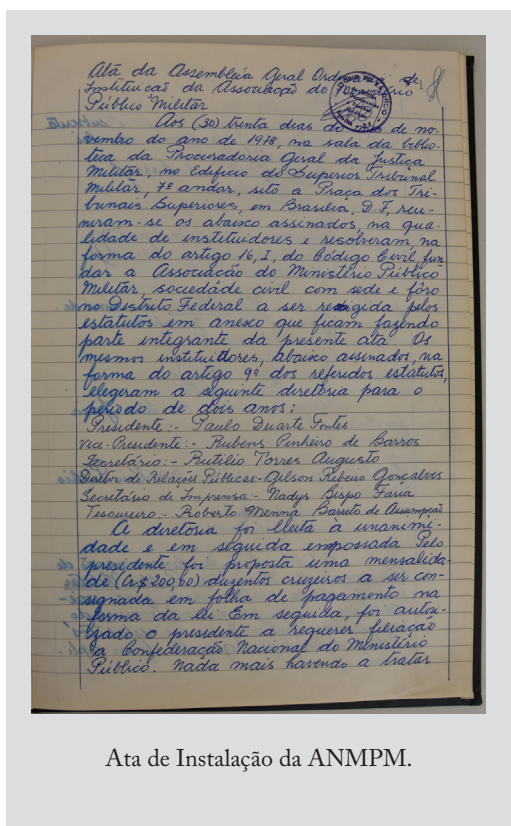 Ata da Assembléia Geral de
Instituição da Associação do Ministério
Público Militar
Aos (30) trinta dias do de no-
vembro do ano de 1978, na sala da biblio-
teca da Procuradoria Geral da Justiça
Militar, no Edifício do Superior Tribunal
Militar, 7º andar, sito a Praça dos Tri-
bunais Superiores, em Brasília, D.F, reu-
niram-se os abaixo assinados, na qua-
lidade de instituidores e resolveram, na
forma do artigo 16, I, do Código Civil fun
dar a Associação do Ministério Público
Militar, sociedade civil com sede e fôro
no Distrito Federal a ser regida pelos
estatutos em anexo que ficam fazendo
parte integrante da presente ata. Os
mesmos instituidores, abaixo assinados, na
forma do artigo 9º dos referidos estatutos,
elegeram a seguinte diretoria para o
período de dois anos:
Presidente:- Paulo Duarte Fontes
Vice-Presidente:- Rubens Pinheiro de Barros
Secretário:- Rutílio Torres Augusto
Diretor de Relações Públicas:- Gilson Ribeiro Gonçalves
Secretário de Imprensa:- Nadyr Bispo Faria
Tesoureiro:- Roberto Menna Barreto de Assumpção
A diretoria foi eleita à unanimi-
dade e em seguida empossada Pelo
presidente foi proposta uma mensalida-
de (Cr$ 200,00) duzentos cruzeiros a ser con-
signada em folha de pagamento na
forma da lei. Em seguida, foi autori-
zado o presidente a requerer filiação
a Confederação Nacional do Ministério
Público. Nada mais havendo a tratar
Ata de Instalação da ANMPM.